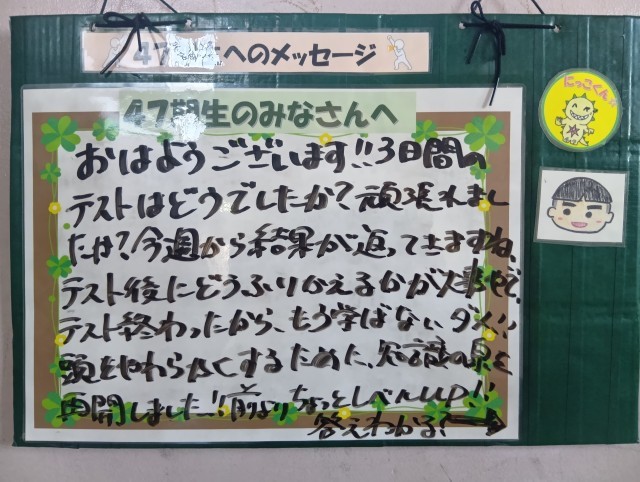 47 へのメッセージ
にっこくん
47期生のみなさんへ
おはようございます!!3日間の
テストはどうでしたか?頑張れまし
たか?今週から結果が返ってきますね。
テスト後にどうふりかえるかが大事やで。
テスト終わったから、もう学ばないダメ!!
頭をやわらかくするために、知恵の泉を
再開しました!!前よりちょっとレベルUP!!
答えわかる?→